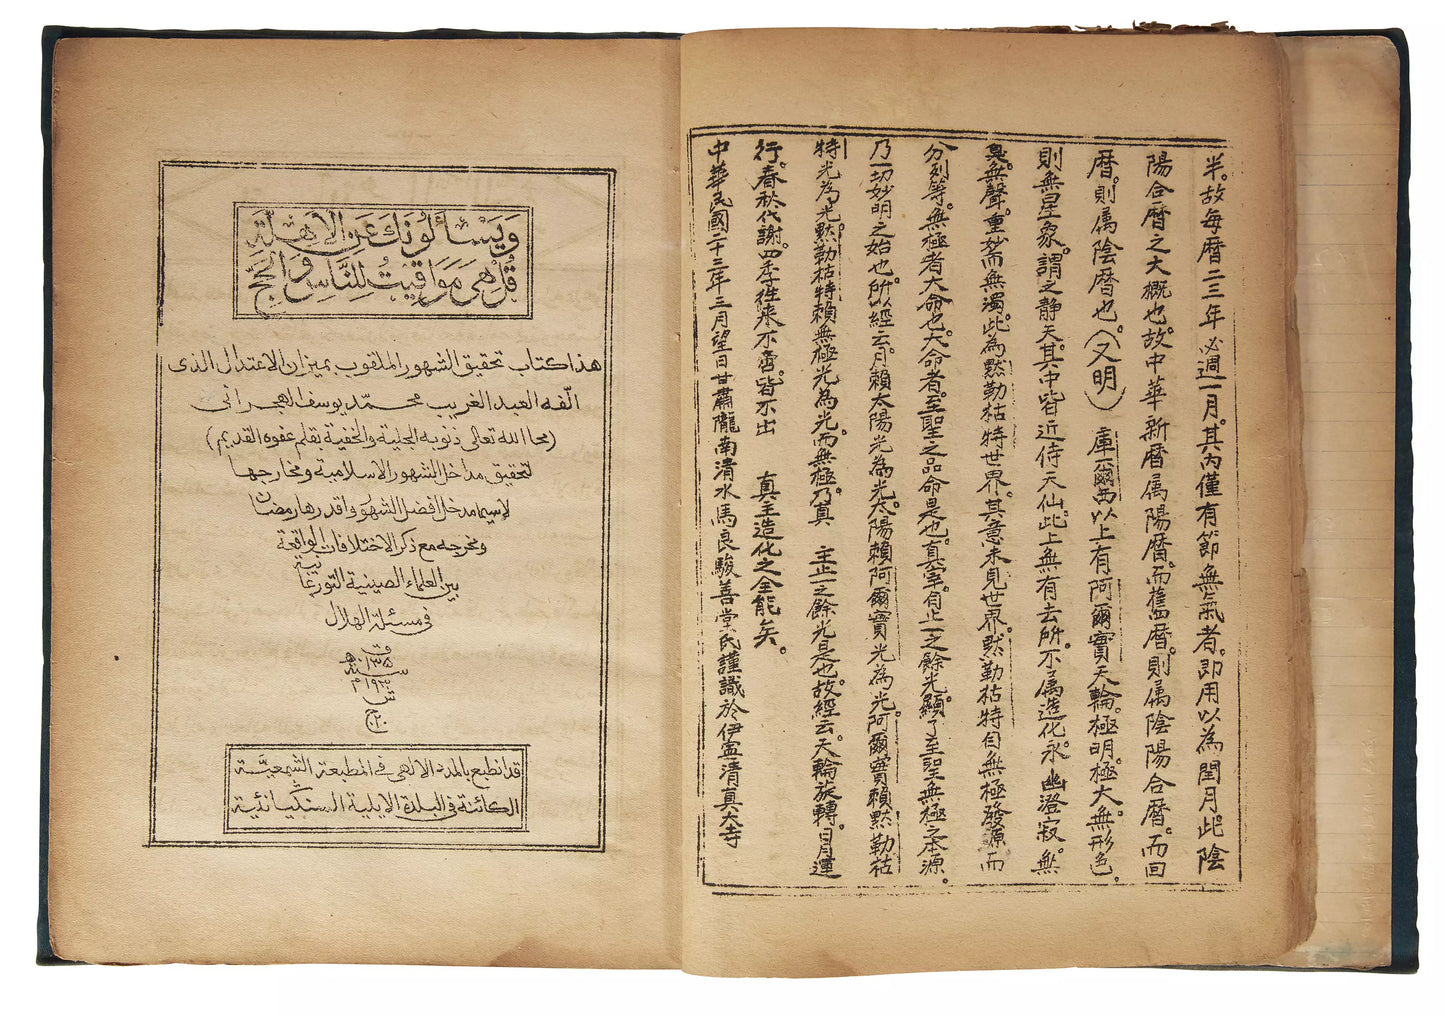 وَيَسْأَلُونَكَ عَنِ الْأَهِلَّةِ
قُلْ هِيَ مَوَاقِيتُ لِلنَّاسِ وَالْحَجِّ
هذا كتاب تحقيق الشهور الملقوب بميزان الاعتدال الذى
الّفه العبد الغريب محمّد يوسف الهجرانى
(محا الله تعالى ذنوبه الجلية والخفية بقلم عفوه القديم)
لتحقيق مداخل الشهور الاسلامية ومخارجها
لاسيما مدخل افضل الشهور واقدرها رمضان
ومخرجه مع ذكر الاختلافات الواقعة
بين العلماء الصينية
فى مسئلة الهلال
سنة
قد انطبع بالمدد الالهى فى المطبعة
الكائنة فى البلدة الايلية
半。故每曆二三年必遇一月。其內僅有節無氣者。即用以為閏月。此陰
陽合曆之大概也。故中華新曆属陽曆。而舊曆。則属陰陽合曆。而回
曆。則属陰曆也。(又明)庫爾西以上有阿爾實天輪。極明。極大。無形色。
則無星象。謂之静天。其中皆近侍天仙。此上無有去所。不属造化。永。幽澄寂。無
臭。無聲。重妙而無濁。此為黙勒枯特世界。其意未見世界。黙勒枯特自無極發源。而
分列等。無極者大命也。大命者。至聖之品命是也。真宰。自止一之餘光。顯了至聖無極之本源。
乃一切妙明之始也。所以經云。月賴太陽光為光。太陽賴阿爾實光為光。阿爾實賴黙勒枯
特光為光。黙勒枯特賴無極光為光。而無極。乃真 主止一之餘光是也。故經云。天輪旋轉。日月運
行。春秋代謝。四季徃来。不啻。皆不出 真主造化之全能矣。
中華民國二十三年三月望日甘肅隴南清水馬良駿善堂氏謹識於伊寧清真大寺